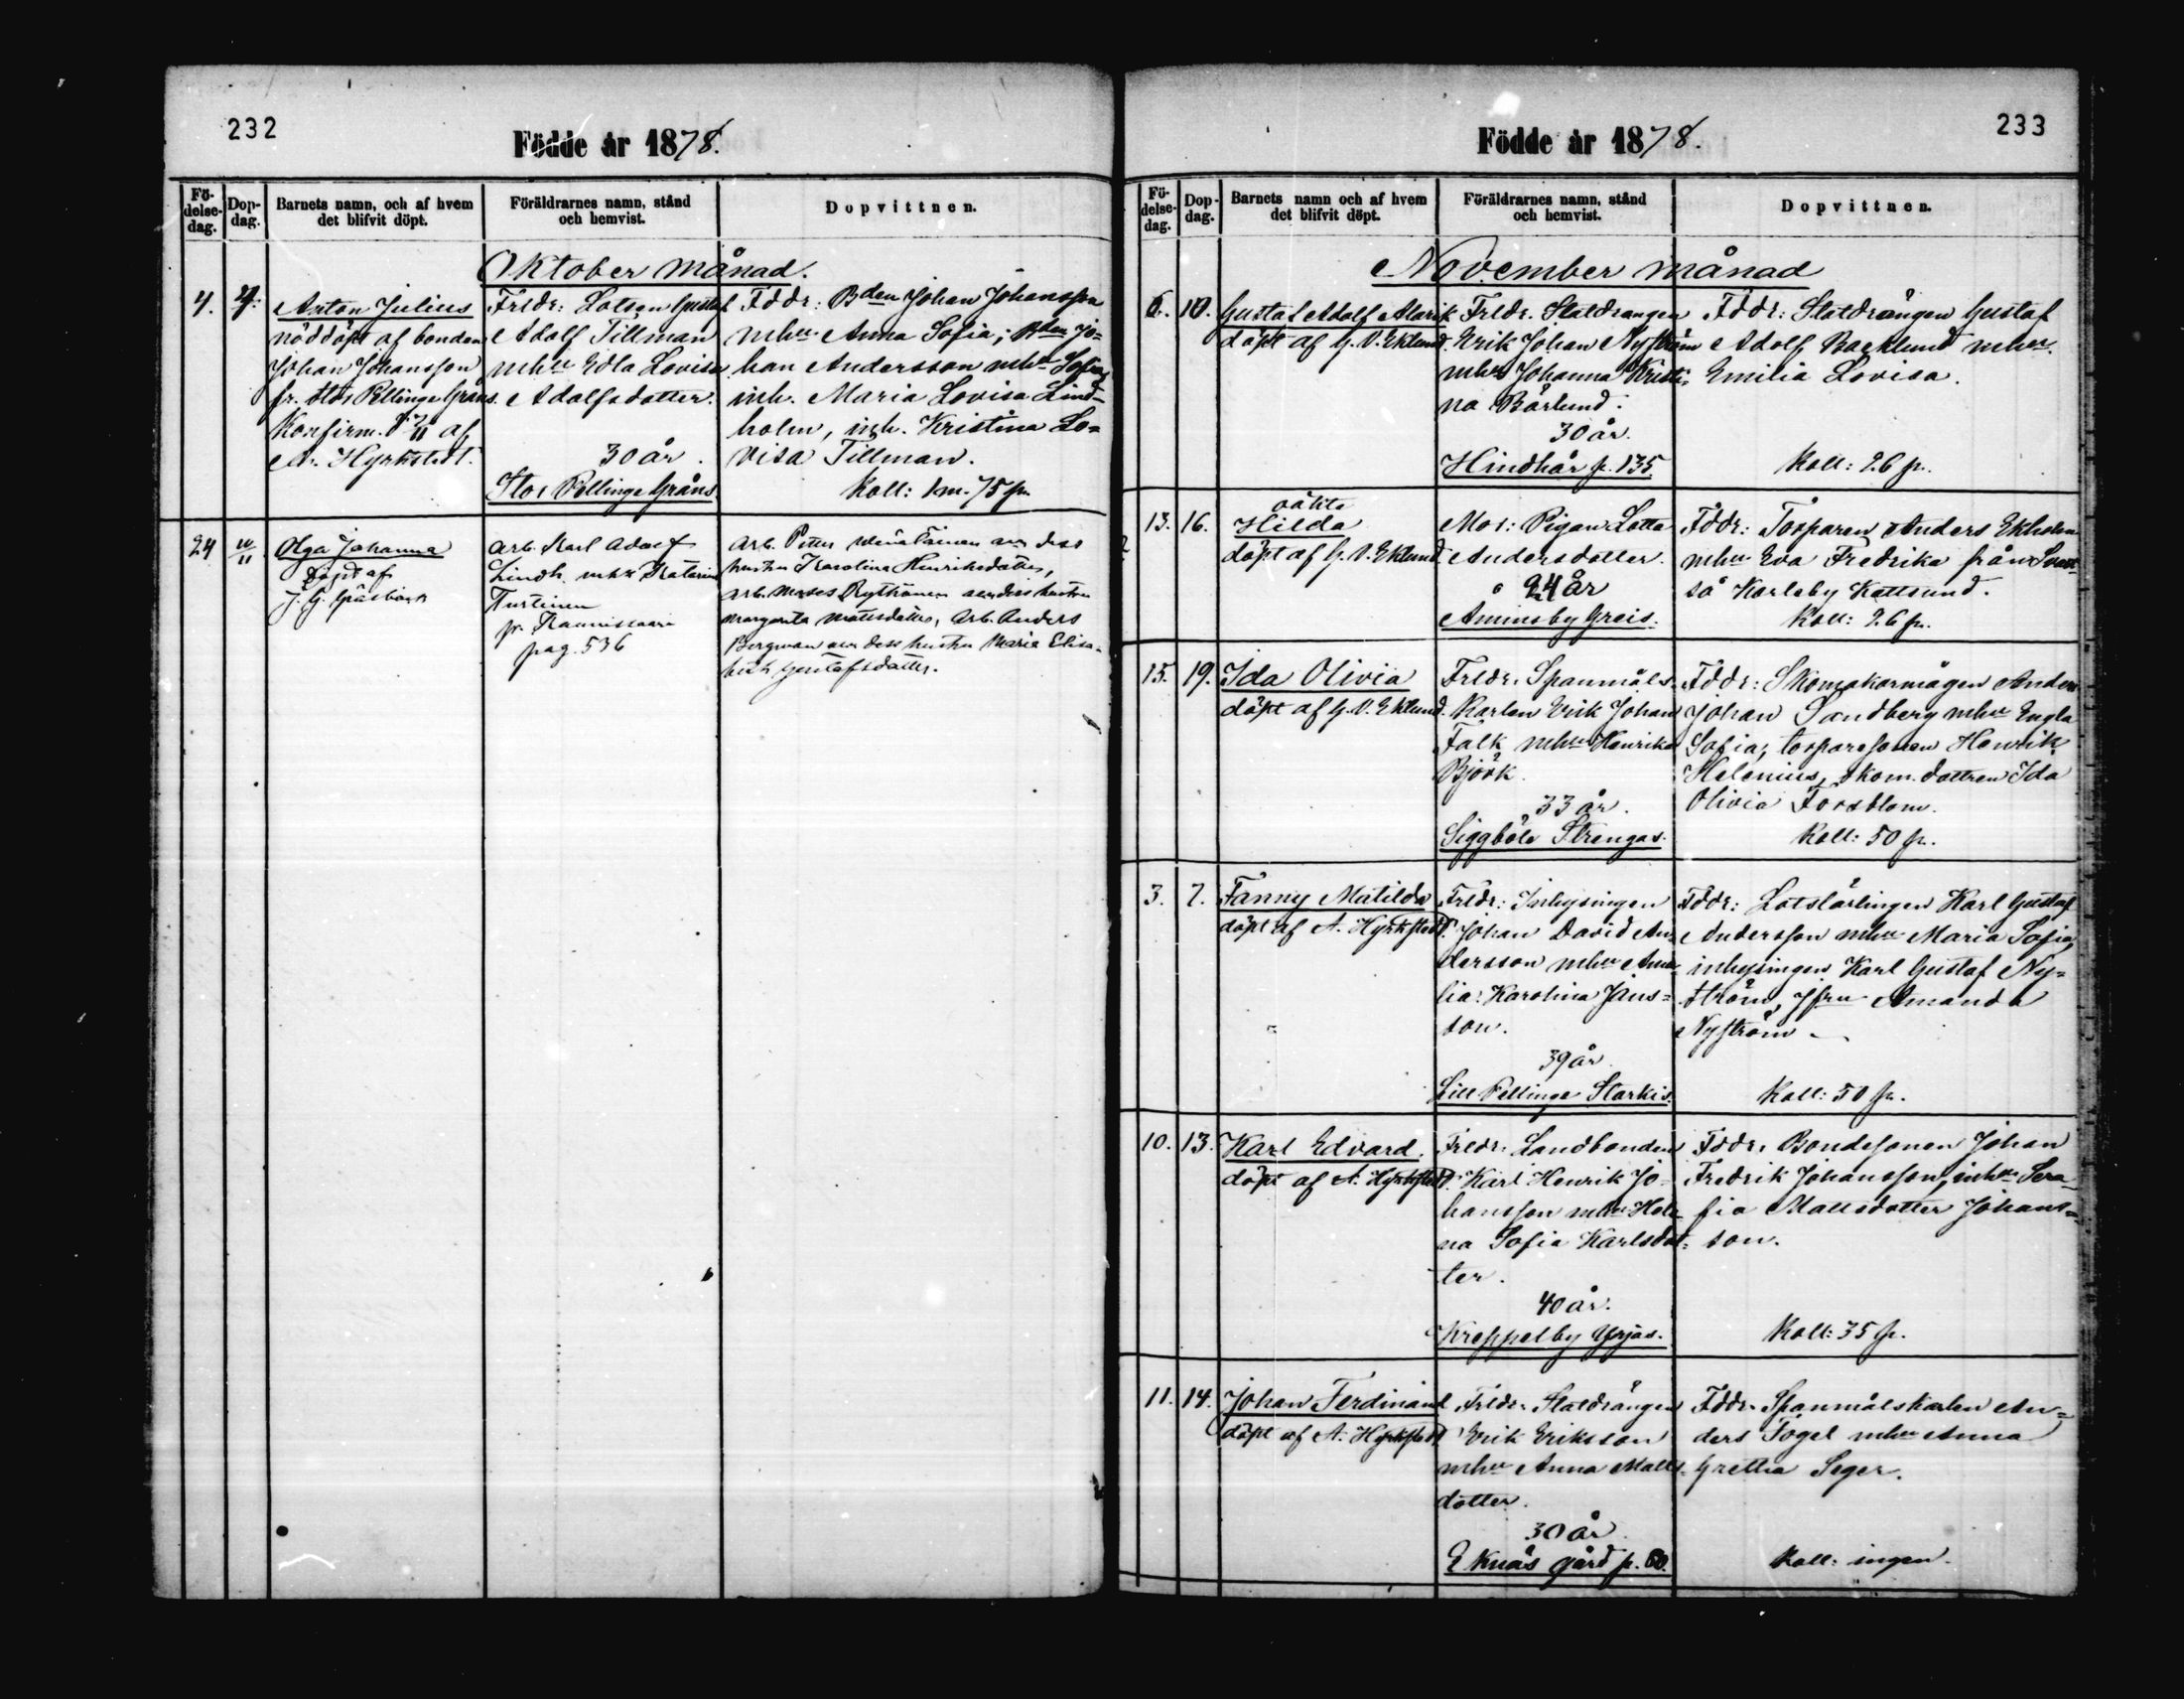 232
Födde år 1878.
Fö-
delse-
dag.
Dop-
dag.
Barnets namn, och af hvem
det blifvit döpt.
Föräldrarnes namn, stånd
och hemvist.
Dopvittnen.
Oktober månad.
4.
4.
Anton Julius
nöddöpt af bonden
Johan Johansson
fr. Stor Pellinge Gräns.
Konfirm. d. af
A. Hyrkstedt.
Frldr: Lotsen Gustaf
Adolf Tillman
mhu Edla Lovisa
Adolfsdotter.
30 år.
Stor Pellinge Gräns.
Fddr: Bden Johan Johansson
mhu Anna Sofia; Bden Jo=
han Andersson mhu Sofia,
inh. Maria Lovisa Lind=
holm, inh. Kristina Lo=
visa Tillman.
Koll: 1 m. 75 p.
24
Olga Johanna
döpt af
J. G.
Arb. Karl Adolf
Lindh mhu Katarina
Turtinen
fr.
pag. 536
Arb. Petter och dess
hustru Karolina Henriksdotter,
arb. Moses Rythönen och dess hustru
Margareta Mattsdotter, Arb. Anders
Bergman och dess hustru Maria Elisa-
beth Gustafsdotter.
233
Födde år 1878.
Fö-
delse-
dag.
Dop-
dag.
Barnets namn och af hvem
det blifvit döpt.
Föräldrarnes namn, stånd
och hemvist.
Dopvittnen.
November månad
6.
10.
Gustaf Adolf Alarik
döpt af G. V. Eklund.
Frldr. Statdrängen
Erik Johan Nyström
mhu Johanna Kristi-
na Bärlund.
30 år.
Hindhår p. 135.
Fddr: Statdrängen Gustaf
Adolf Backlund mhu
Emilia Lovisa.
Koll: 26 p.
13.
16.
oäkta
Hilda
döpt af G. V. Eklund.
Mor: Pigan Lotta
Andersdotter.
24 år
Aminsby Greis.
Fddr: Torparen Anders Ekholm
mhu Eva Fredrika från Svart-
så Karleby Kattsund.
Koll: 26 p.
15.
19.
Ida Olivia
döpt af G. V. Eklund.
Frldr. Spanmåls-
karlen Erik Johan
Falk mhu Henrika
Björk.
33 år.
Siggböle Strengas.
Fddr: Skomakarmågen Anders
Johan Sandberg mhu Engla
Sofia, torparesonen Henrik
Helenius, skom. dottren Ida
Olivia Forsblom.
Koll: 50 p.
3.
7.
Fanny Matilda
döpt af A. Hyrkstedt.
Frldr: Inhysingen
Johan David An-
dersson mhu Ama-
lia Karolina Jans=
son.
39 år
Lill Pellinge Starkis.
Fddr: Lotslärlingen Karl Gustaf
Andersson mhu Maria Sofia,
inhysingen Karl Gustaf Ny=
ström, Jfru Amanda
Nyström.
Koll: 50 p.
10.
13.
Karl Edvard.
döpt af A. Hyrkstedt.
Frldr: Landbonden
Karl Henrik Jo-
hansson mhu Hele-
na Sofia Karlsdot=
ter.
40 år.
Kreppelby Yrjas.
Fddr. Bondesonen Johan
Fredrik Johansson, inh. Sera-
fia Mattsdotter Johans=
son.
Koll: 35 p.
11.
14.
Johan Ferdinand
döpt af A. Hyrkstedt
Frldr. Statdrängen
Erik Eriksson
mhu Anna Matts-
dotter.
30 år.
Eknäs gård p. 60.
Fddr. Spanmålskarlen An=
ders Fogel mhu Anna
Gretha Seger.
Koll: ingen.